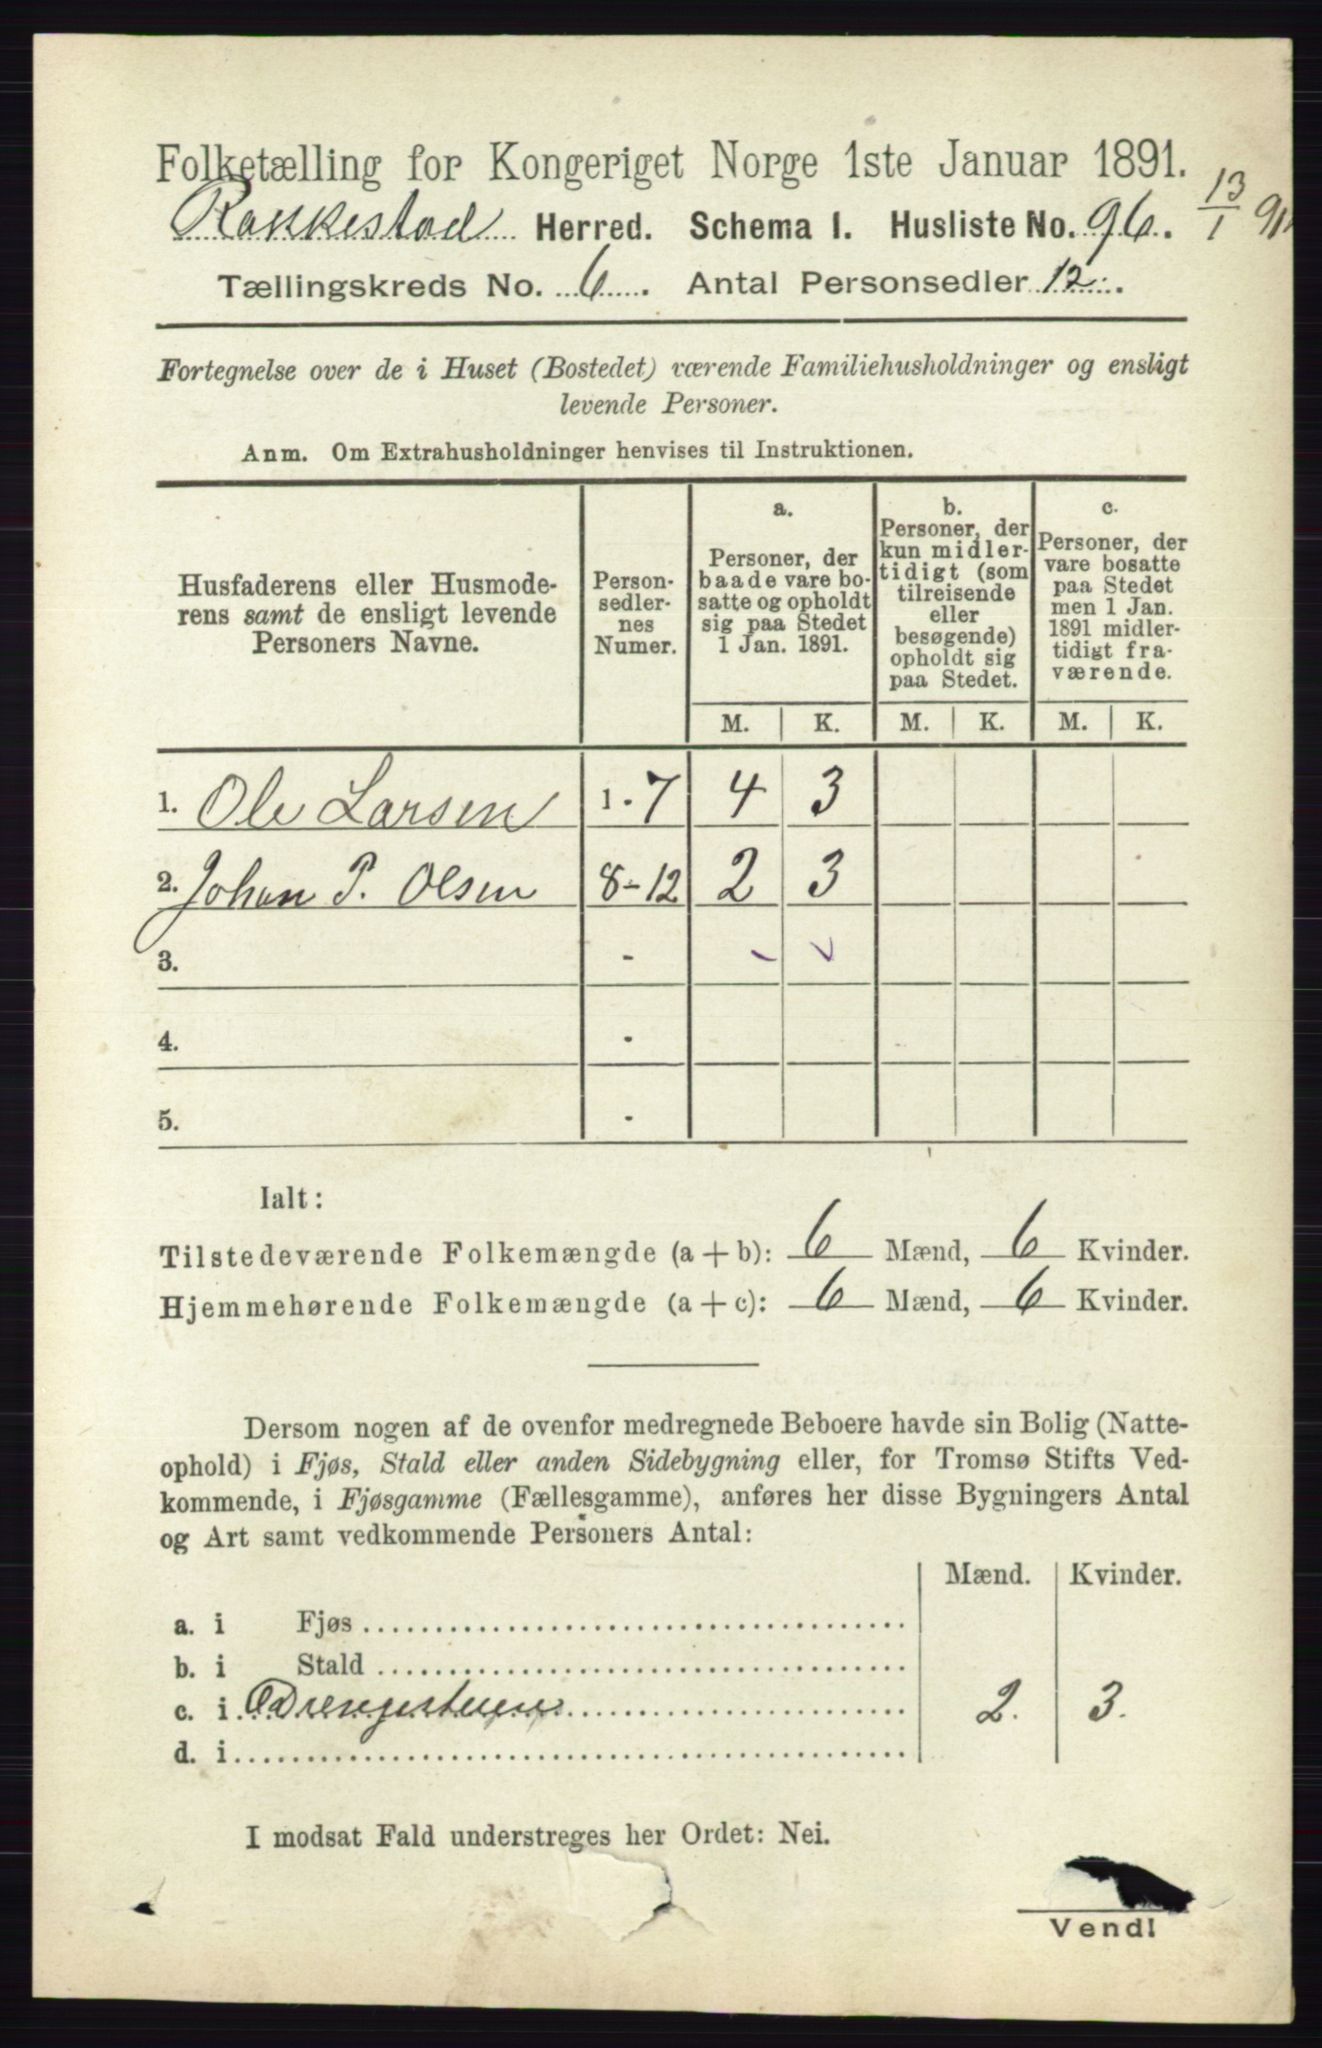 Folketælling for Kongeriget Norge 1ste Januar 1891.
Rakkestad Herred. Schema I. Husliste No. 96. 13/1 91
Tællingskreds No. 6. Antal Personsedler 12.
Fortegnelse over de i Huset (Bostedet) værende Familiehusholdninger og ensligt
levende Personer.
Anm. Om Extrahusholdninger henvises til Instruktionen.
Husfaderens eller Husmode-
rens samt de ensligt levende
Personers Navne.
Person-
sedler-
nes
Numer.
a.
Personer, der
baade vare bo-
satte og opholdt
sig paa Stedet
1 Jan. 1891.
b.
Personer, der
kun midler-
tidigt (som
tilreisende
eller
besøgende)
opholdt sig
paa Stedet.
c.
Personer, der
vare bosatte
paa Stedet
men 1 Jan.
1891 midler-
tidigt fra-
værende.
M. K. M. K. M. K.
1. Ole Larsen 1-7 4 3
2. Johan P. Olsen 8-12 2 3
3. -
4. -
5. -
Ialt:
Tilstedeværende Folkemængde (a+b): 6 Mænd, 6 Kvinder.
Hjemmehørende Folkemængde (a+c): 6 Mænd, 6 Kvinder.
Dersom nogen af de ovenfor medregnede Beboere havde sin Bolig (Natte-
ophold) i Fjøs, Stald eller anden Sidebygning eller, for Tromsø Stifts Ved-
kommende, i Fjøsgamme (Fællesgamme), anføres her disse Bygningers Antal
og Art samt vedkommende Personers Antal:
Mænd. Kvinder.
a. i Fjøs
b. i Stald
c. i Drengestuen 2. 3.
d. i
I modsat Fald understreges her Ordet: Nei.
Vend!